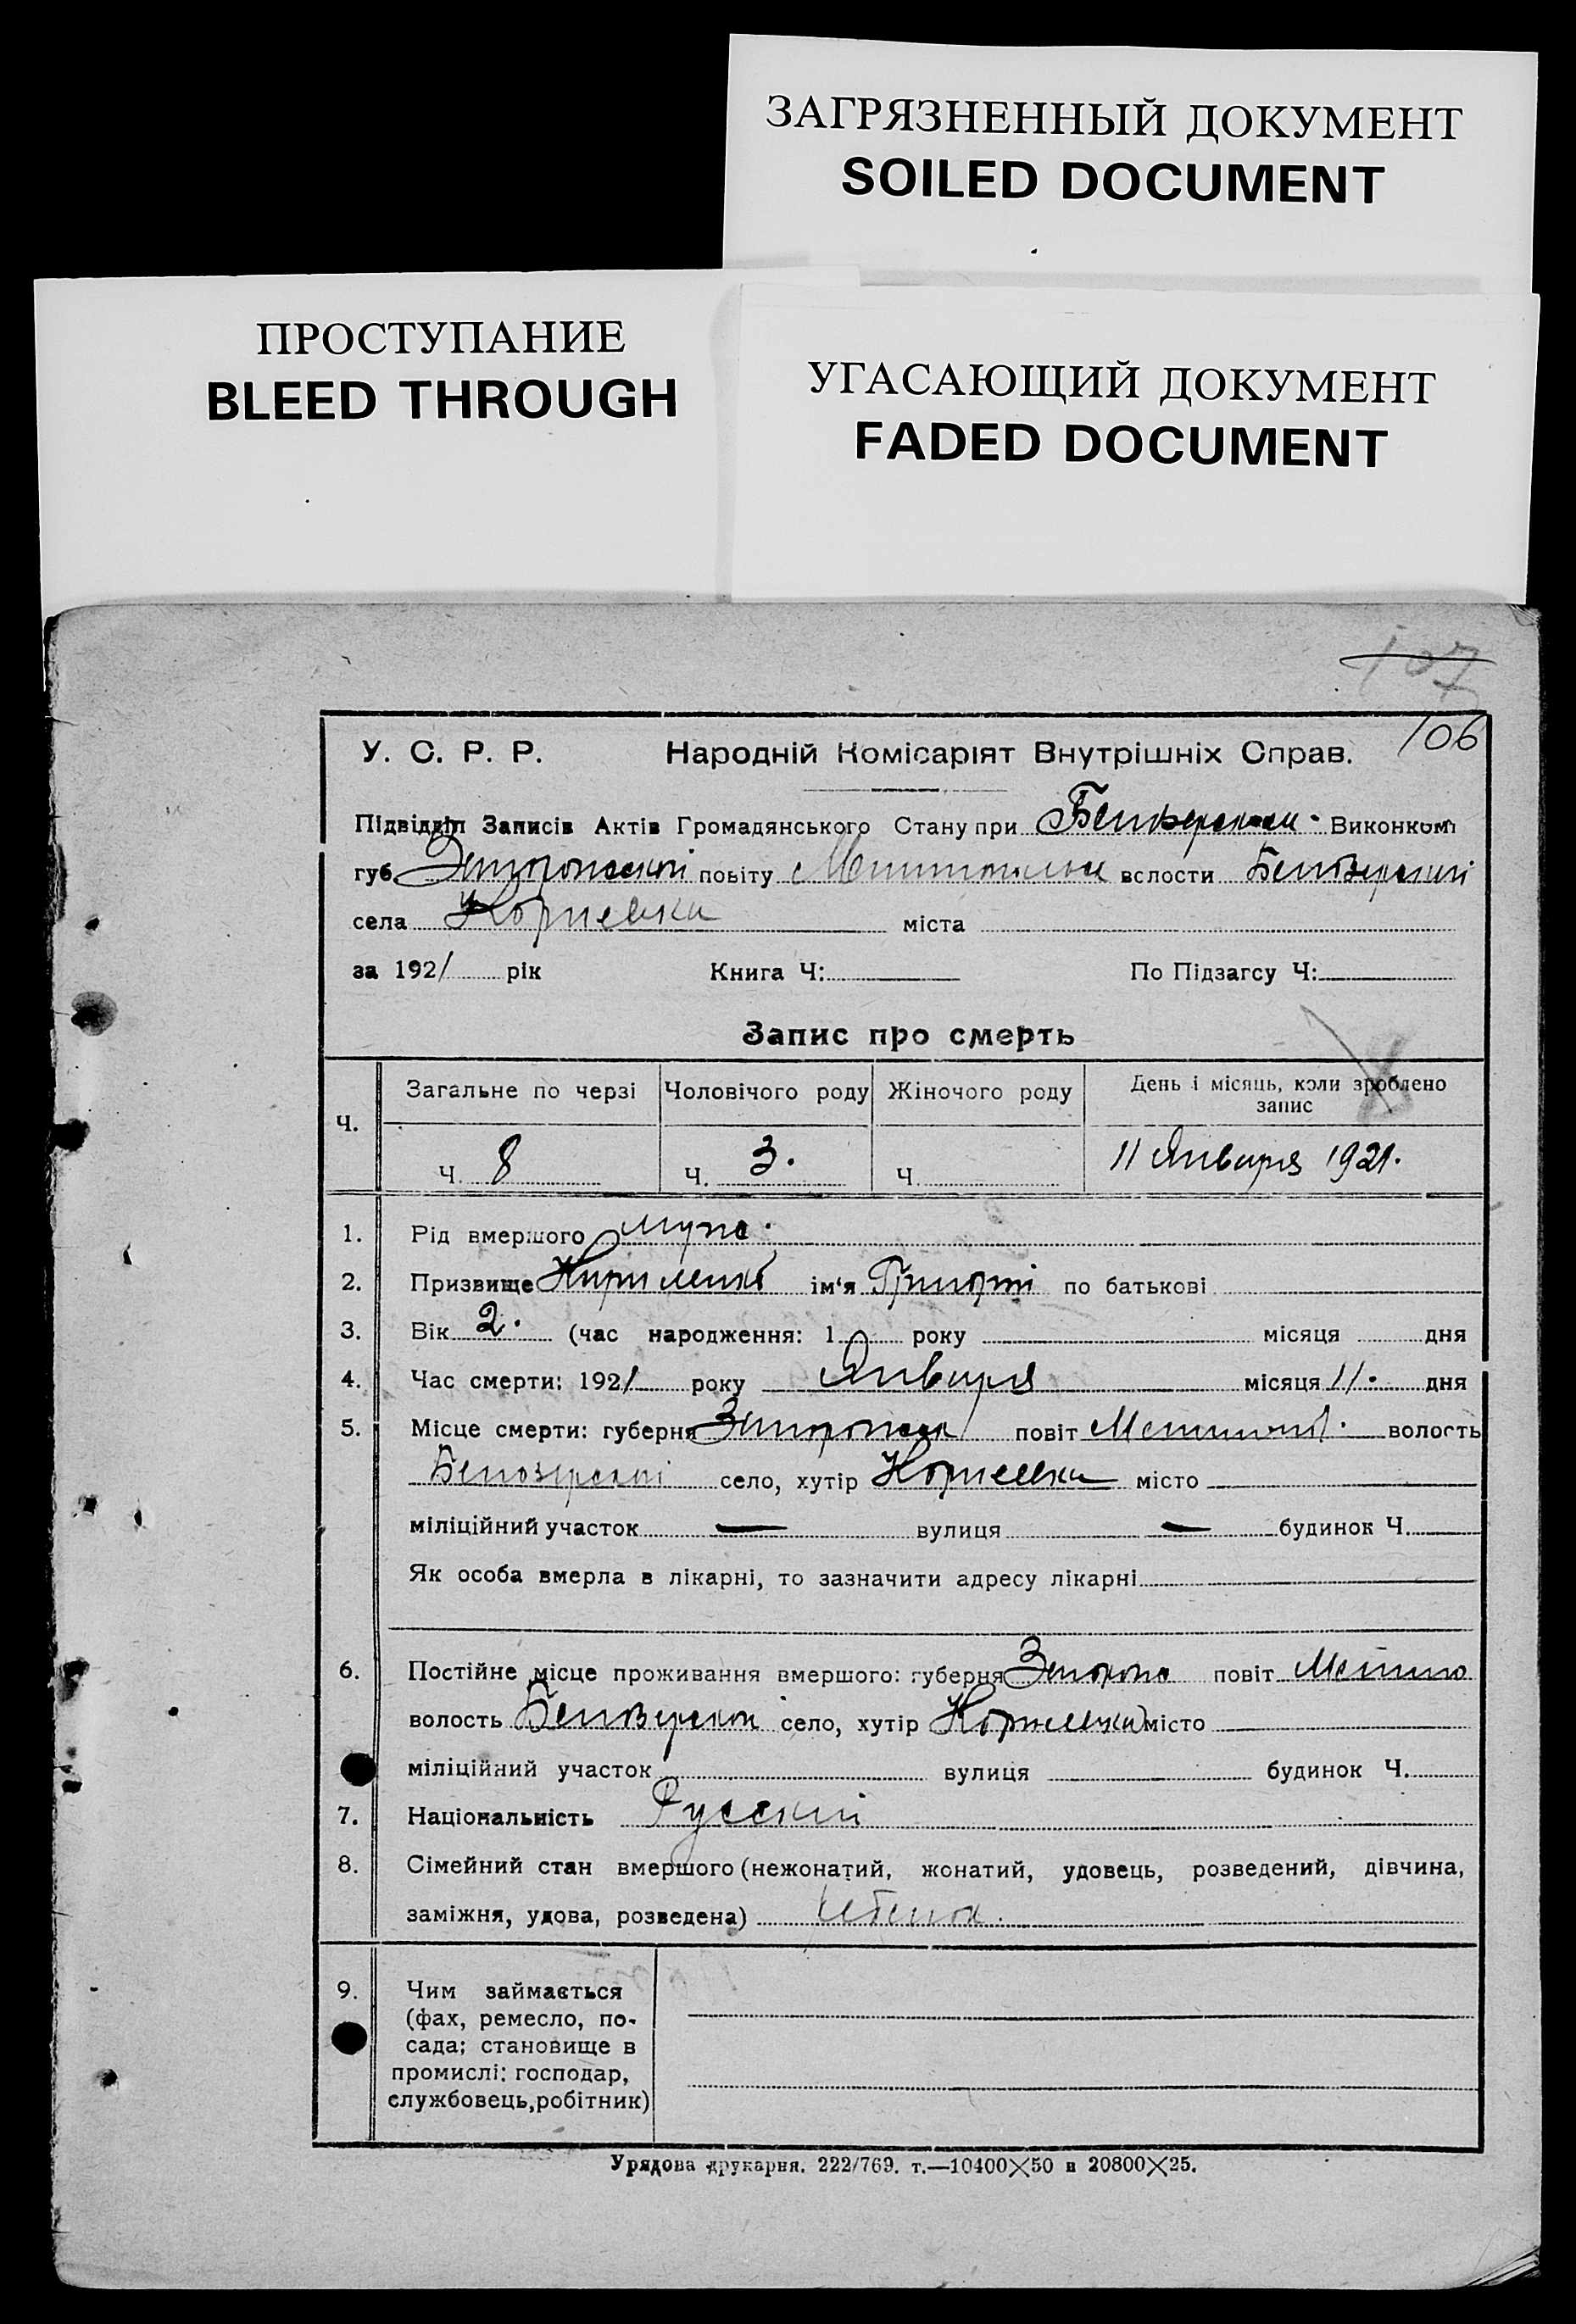 ЗАГРЯЗНЕННЫЙ ДОКУМЕНТ
SOILED DOCUMENT
ПРОСТУПАНИЕ
BLEED THROUGH
УГАСАЮЩИЙ ДОКУМЕНТ
FADED DOCUMENT
107
106
У. С. Р. Р. Народній Комісаріят Внутрішніх Справ.
Підвідділ Записів Актів Громадянського Стану при Виконком
губ. повіту волости Белозерский
села Корнеевка міста
за 1921 рік Книга Ч: По Підзагсу Ч:
Запис про смерть
Ч. Загальне по черзі Чоловічого роду Жіночого роду День і місяць, коли зроблено запис
Ч. 8 Ч. 3. Ч. 11 Января 1921.
1. Рід вмершого муж.
2. Призвище Кириленко ім'я Григорій по батькові
3. Вік 2. (час народження: 1 року місяця дня
4. Час смерти: 1921 року Января місяця 11. дня
5. Місце смерти: губерня повіт волость
Белозерской село, хутір Корнеевка місто
міліційний участок — вулиця — будинок Ч.
Як особа вмерла в лікарні, то зазначити адресу лікарні
6. Постійне місце проживання вмершого: губерня повіт
волость Белозерской село, хутір Корнеевка місто
міліційний участок вулиця будинок Ч.
7. Національність Русский
8. Сімейний стан вмершого (нежонатий, жонатий, удовець, розведений, дівчина,
заміжня, удова, розведена)
9. Чим займається
(фах, ремесло, по-
сада; становище в
промислі: господар,
службовець, робітник)
Урядова друкарня. 222/769. т.—10400×50 и 20800×25.